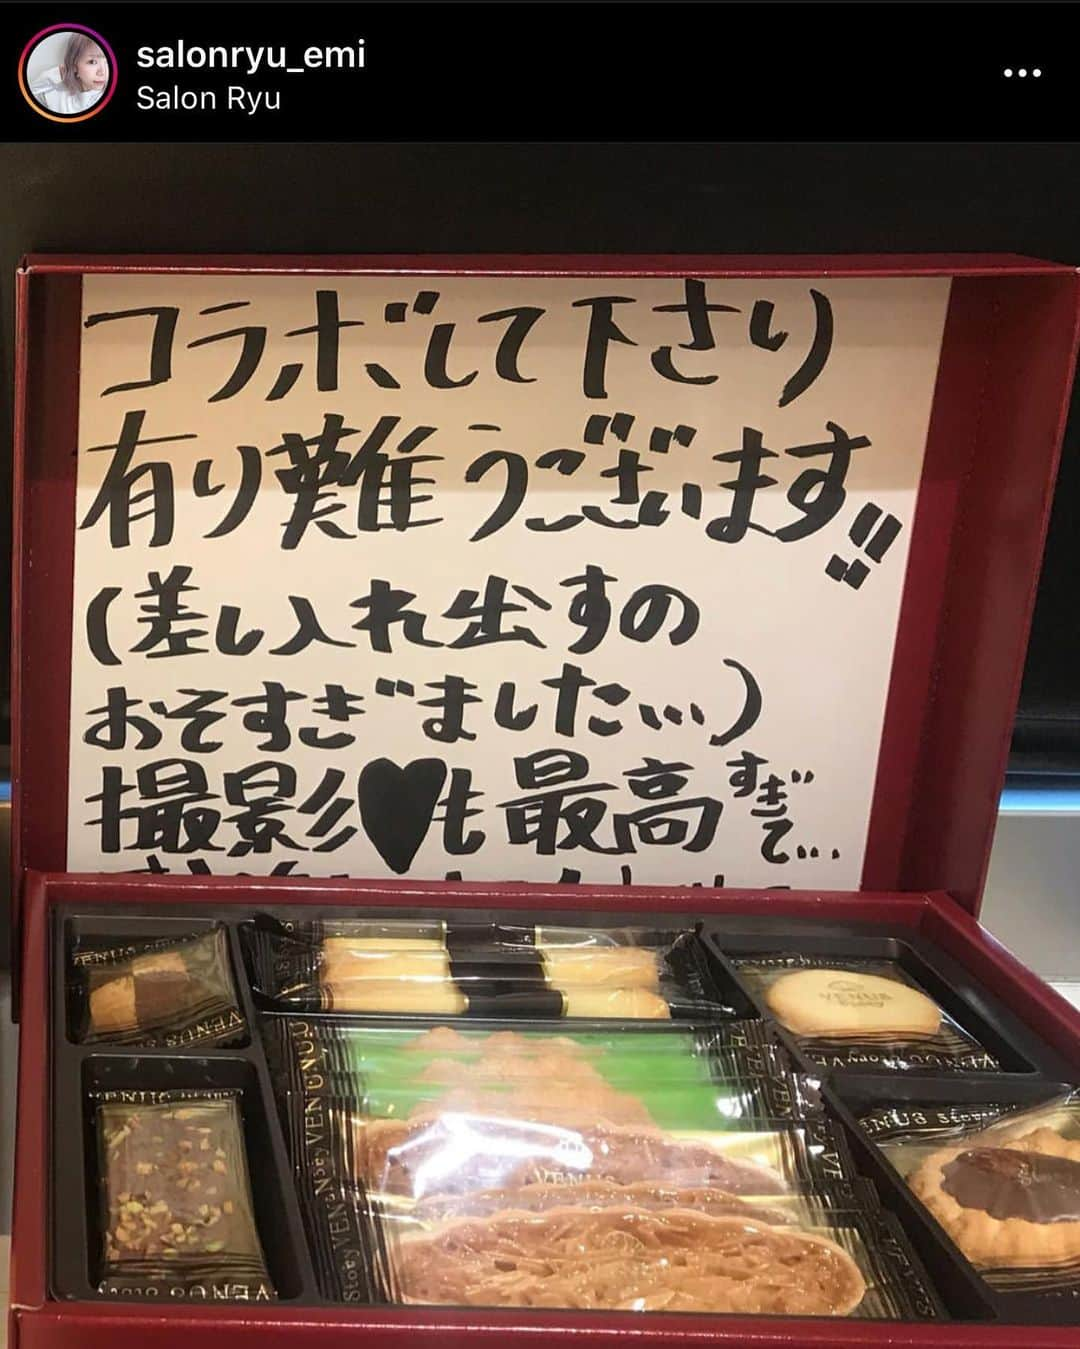 salonryu_emi
Salon Ryu
コラボして下さり
有り難うございます!!
(差し入れ出すの
おそすぎました...)
撮影♥も最高すぎて...
VENUS
VENUS
VENUS
VENUS
VENUS
VENUS Story